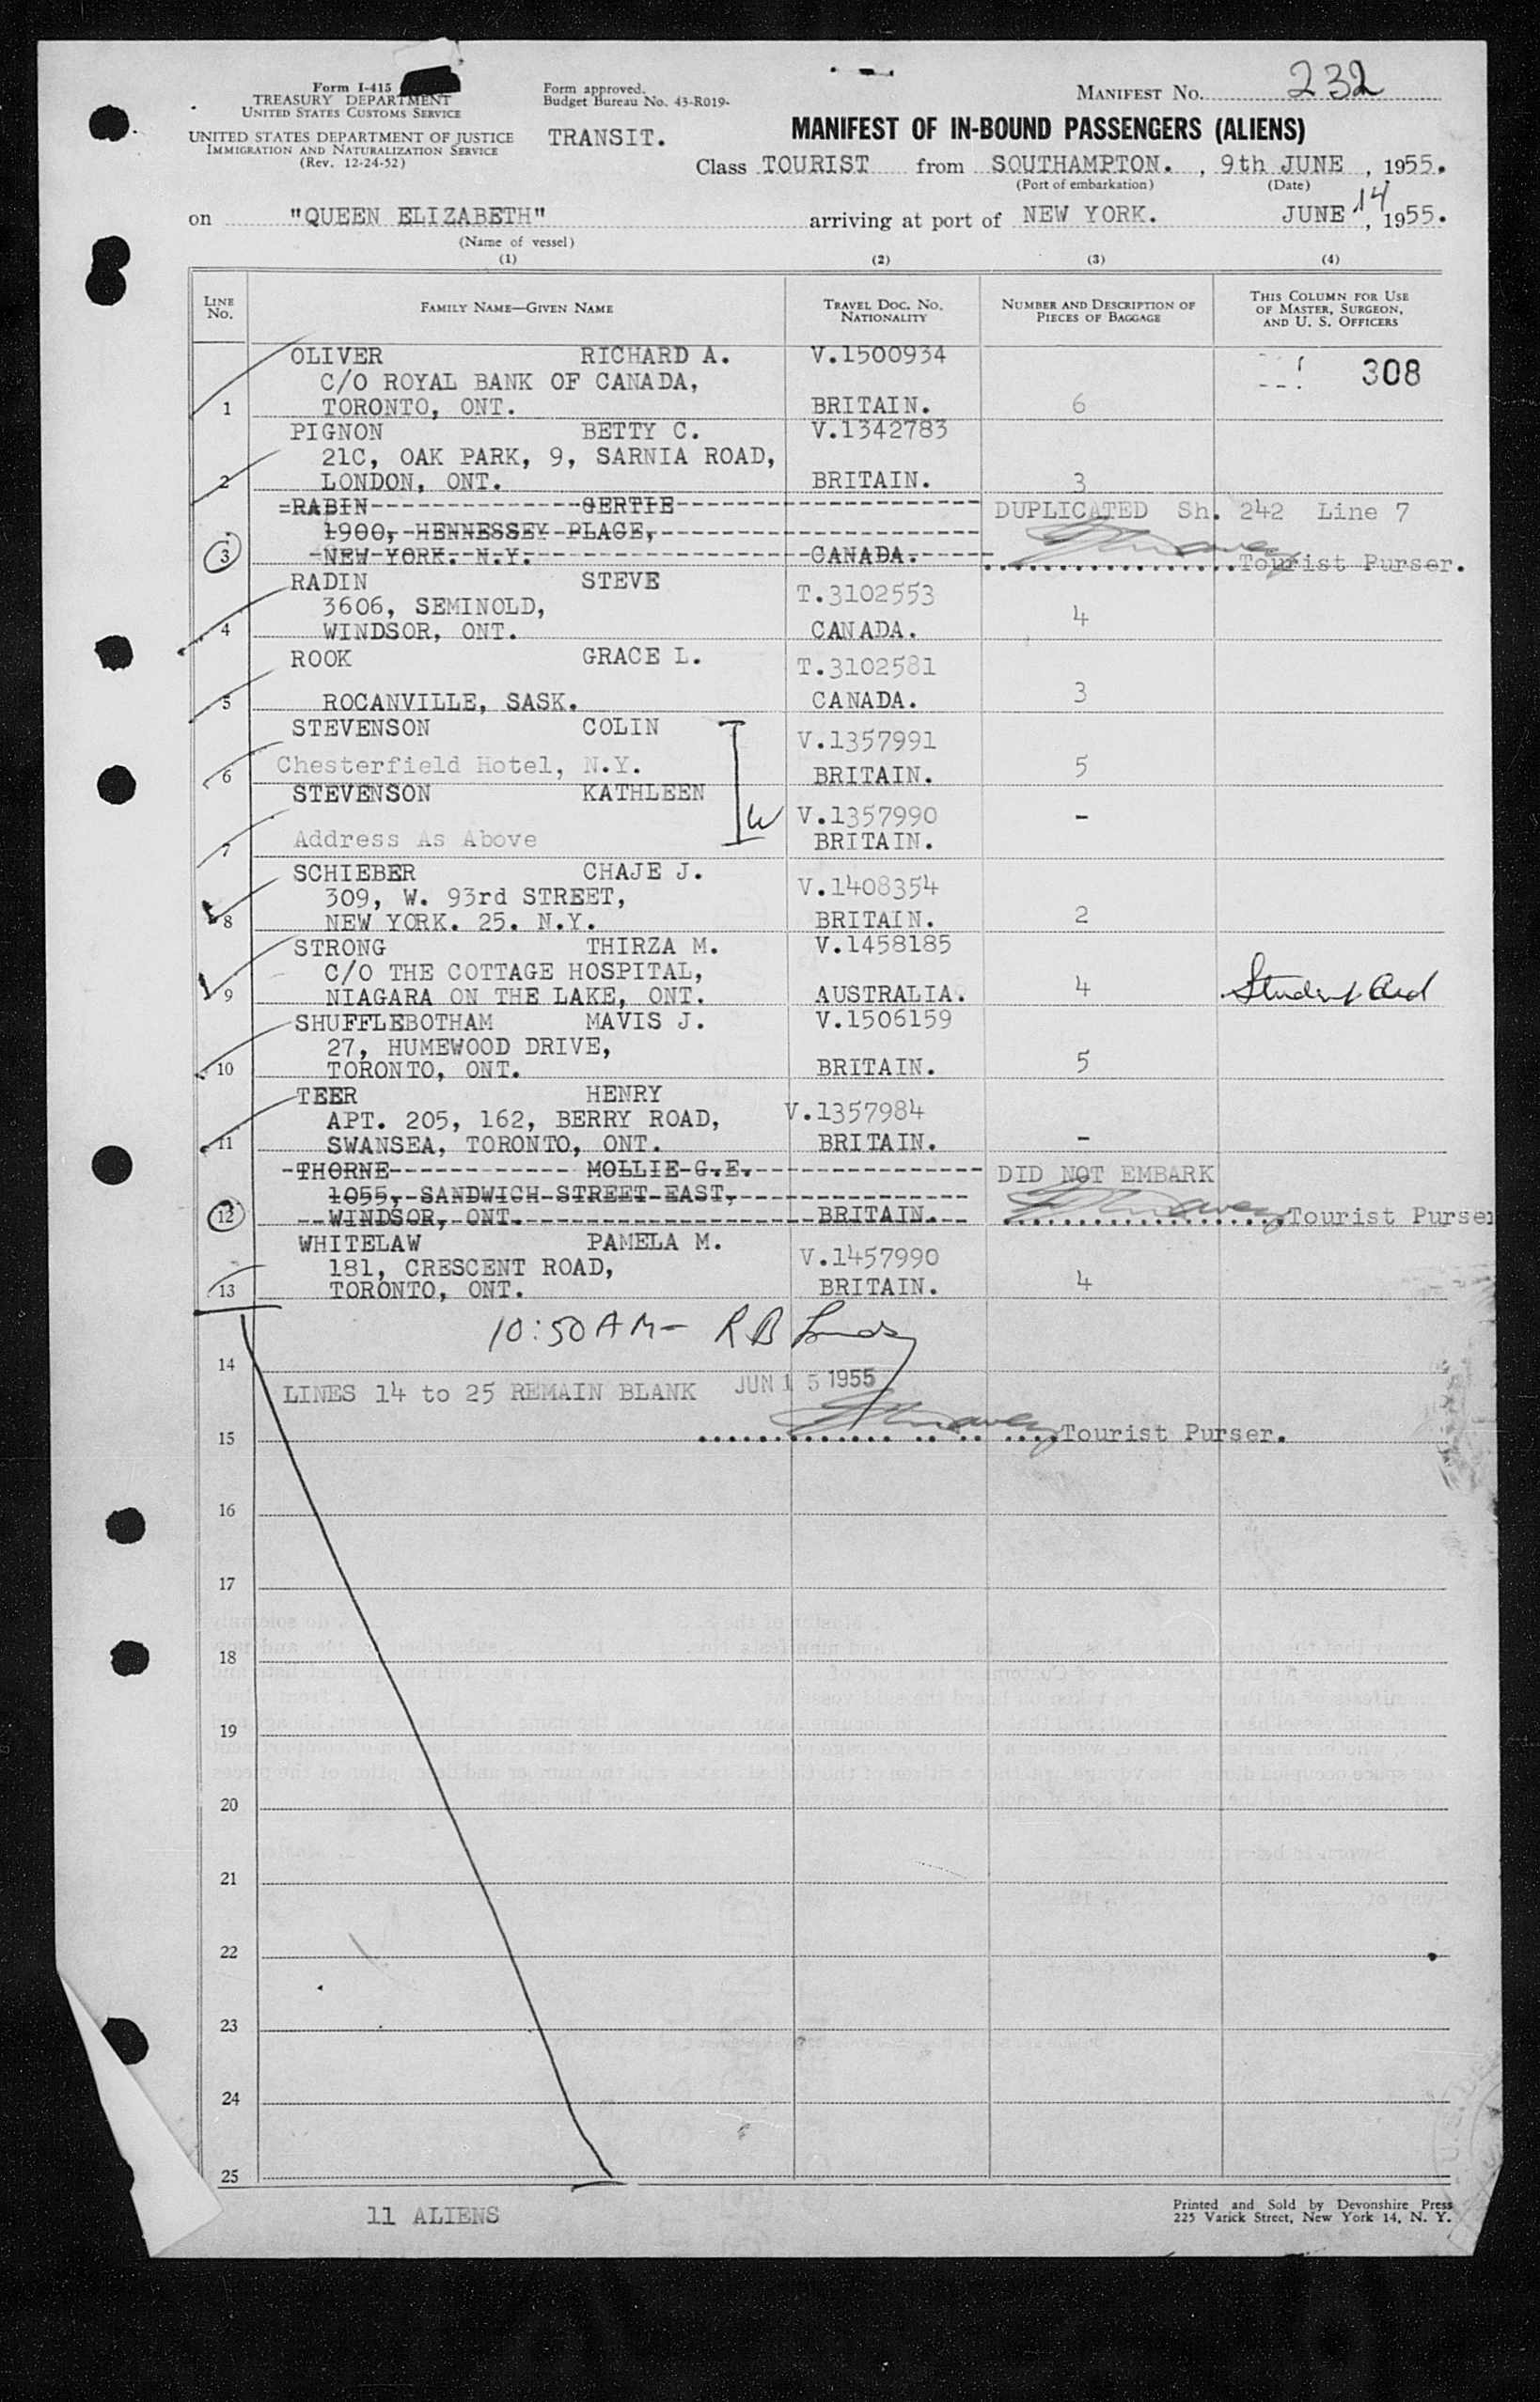 Form I-415
TREASURY DEPARTMENT
UNITED STATES CUSTOMS SERVICE
UNITED STATES DEPARTMENT OF JUSTICE
IMMIGRATION AND NATURALIZATION SERVICE
(Rev. 12-24-52)
Form approved.
Budget Bureau No. 43-R019-
TRANSIT.
MANIFEST NO. 232
MANIFEST OF IN-BOUND PASSENGERS (ALIENS)
Class TOURIST from SOUTHAMPTON. , 9th JUNE , 1955.
(Port of embarkation) (Date)
on "QUEEN ELIZABETH" arriving at port of NEW YORK. JUNE 14, 1955.
(Name of vessel)
(1) (2) (3) (4)
LINE NO. FAMILY NAME—GIVEN NAME TRAVEL DOC. NO. NATIONALITY NUMBER AND DESCRIPTION OF PIECES OF BAGGAGE THIS COLUMN FOR USE OF MASTER, SURGEON, AND U. S. OFFICERS
OLIVER RICHARD A. V.1500934
C/O ROYAL BANK OF CANADA, 308
1 TORONTO, ONT. BRITAIN. 6
PIGNON BETTY C. V.1342783
21C, OAK PARK, 9, SARNIA ROAD,
2 LONDON, ONT. BRITAIN. 3
RABIN GERTIE DUPLICATED Sh. 242 Line 7
1900, HENNESSEY PLACE,
3 NEW YORK. N.Y. CANADA. Tourist Purser.
RADIN STEVE T.3102553
3606, SEMINOLD, 4
4 WINDSOR, ONT. CANADA.
ROOK GRACE L. T.3102581
5 ROCANVILLE, SASK. CANADA. 3
STEVENSON COLIN V.1357991
6 Chesterfield Hotel, N.Y. BRITAIN. 5
STEVENSON KATHLEEN V.1357990 -
W
7 Address As Above BRITAIN.
SCHIEBER CHAJE J. V.1408354
309, W. 93rd STREET,
8 NEW YORK. 25. N.Y. BRITAIN. 2
STRONG THIRZA M. V.1458185
C/O THE COTTAGE HOSPITAL,
9 NIAGARA ON THE LAKE, ONT. AUSTRALIA. 4
SHUFFLEBOTHAM MAVIS J. V.1506159
27, HUMEWOOD DRIVE,
10 TORONTO, ONT. BRITAIN. 5
TEER HENRY V.1357984
APT. 205, 162, BERRY ROAD,
11 SWANSEA, TORONTO, ONT. BRITAIN. -
THORNE MOLLIE G.E. DID NOT EMBARK
1055, SANDWICH STREET EAST,
12 WINDSOR, ONT. BRITAIN. Tourist Purser
WHITELAW PAMELA M. V.1457990
181, CRESCENT ROAD,
13 TORONTO, ONT. BRITAIN. 4
10:50 AM- R B
14
LINES 14 to 25 REMAIN BLANK JUN 15 1955
15 Tourist Purser.
16
17
18
19
20
21
22
23
24
25
11 ALIENS
Printed and Sold by Devonshire Press
225 Varick Street, New York 14, N. Y.